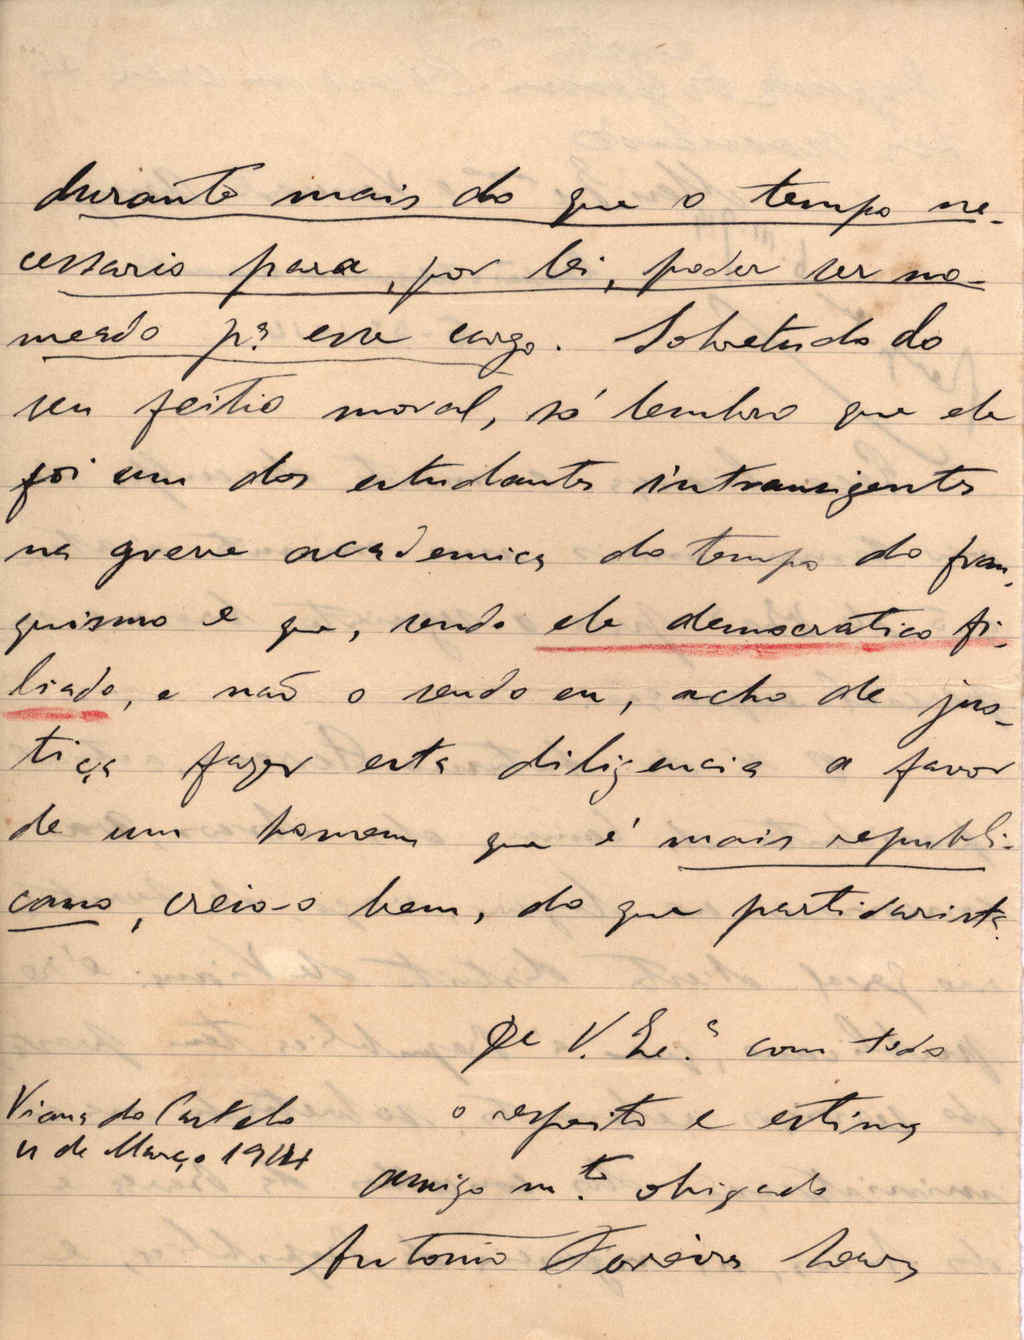 durante mais do que o tempo ne-
cessario para, por lei, poder ser no-
meado pª esse cargo. Sobretudo do
seu feitio moral, só lembro que ele
foi um dos estudantes intransigentes
na greve academica do tempo do fran-
quismo e que, sendo ele democratico fi-
liado, e não o sendo eu, acho de jus-
tiça fazer esta diligencia a favor
de um homem que é mais republi-
cano, creio-o bem, do que partidarista.
De V. Exª com todo
o respeito e estima
Viana do Castelo
11 de Março 1914
amigo m.to obrigado
Antonio